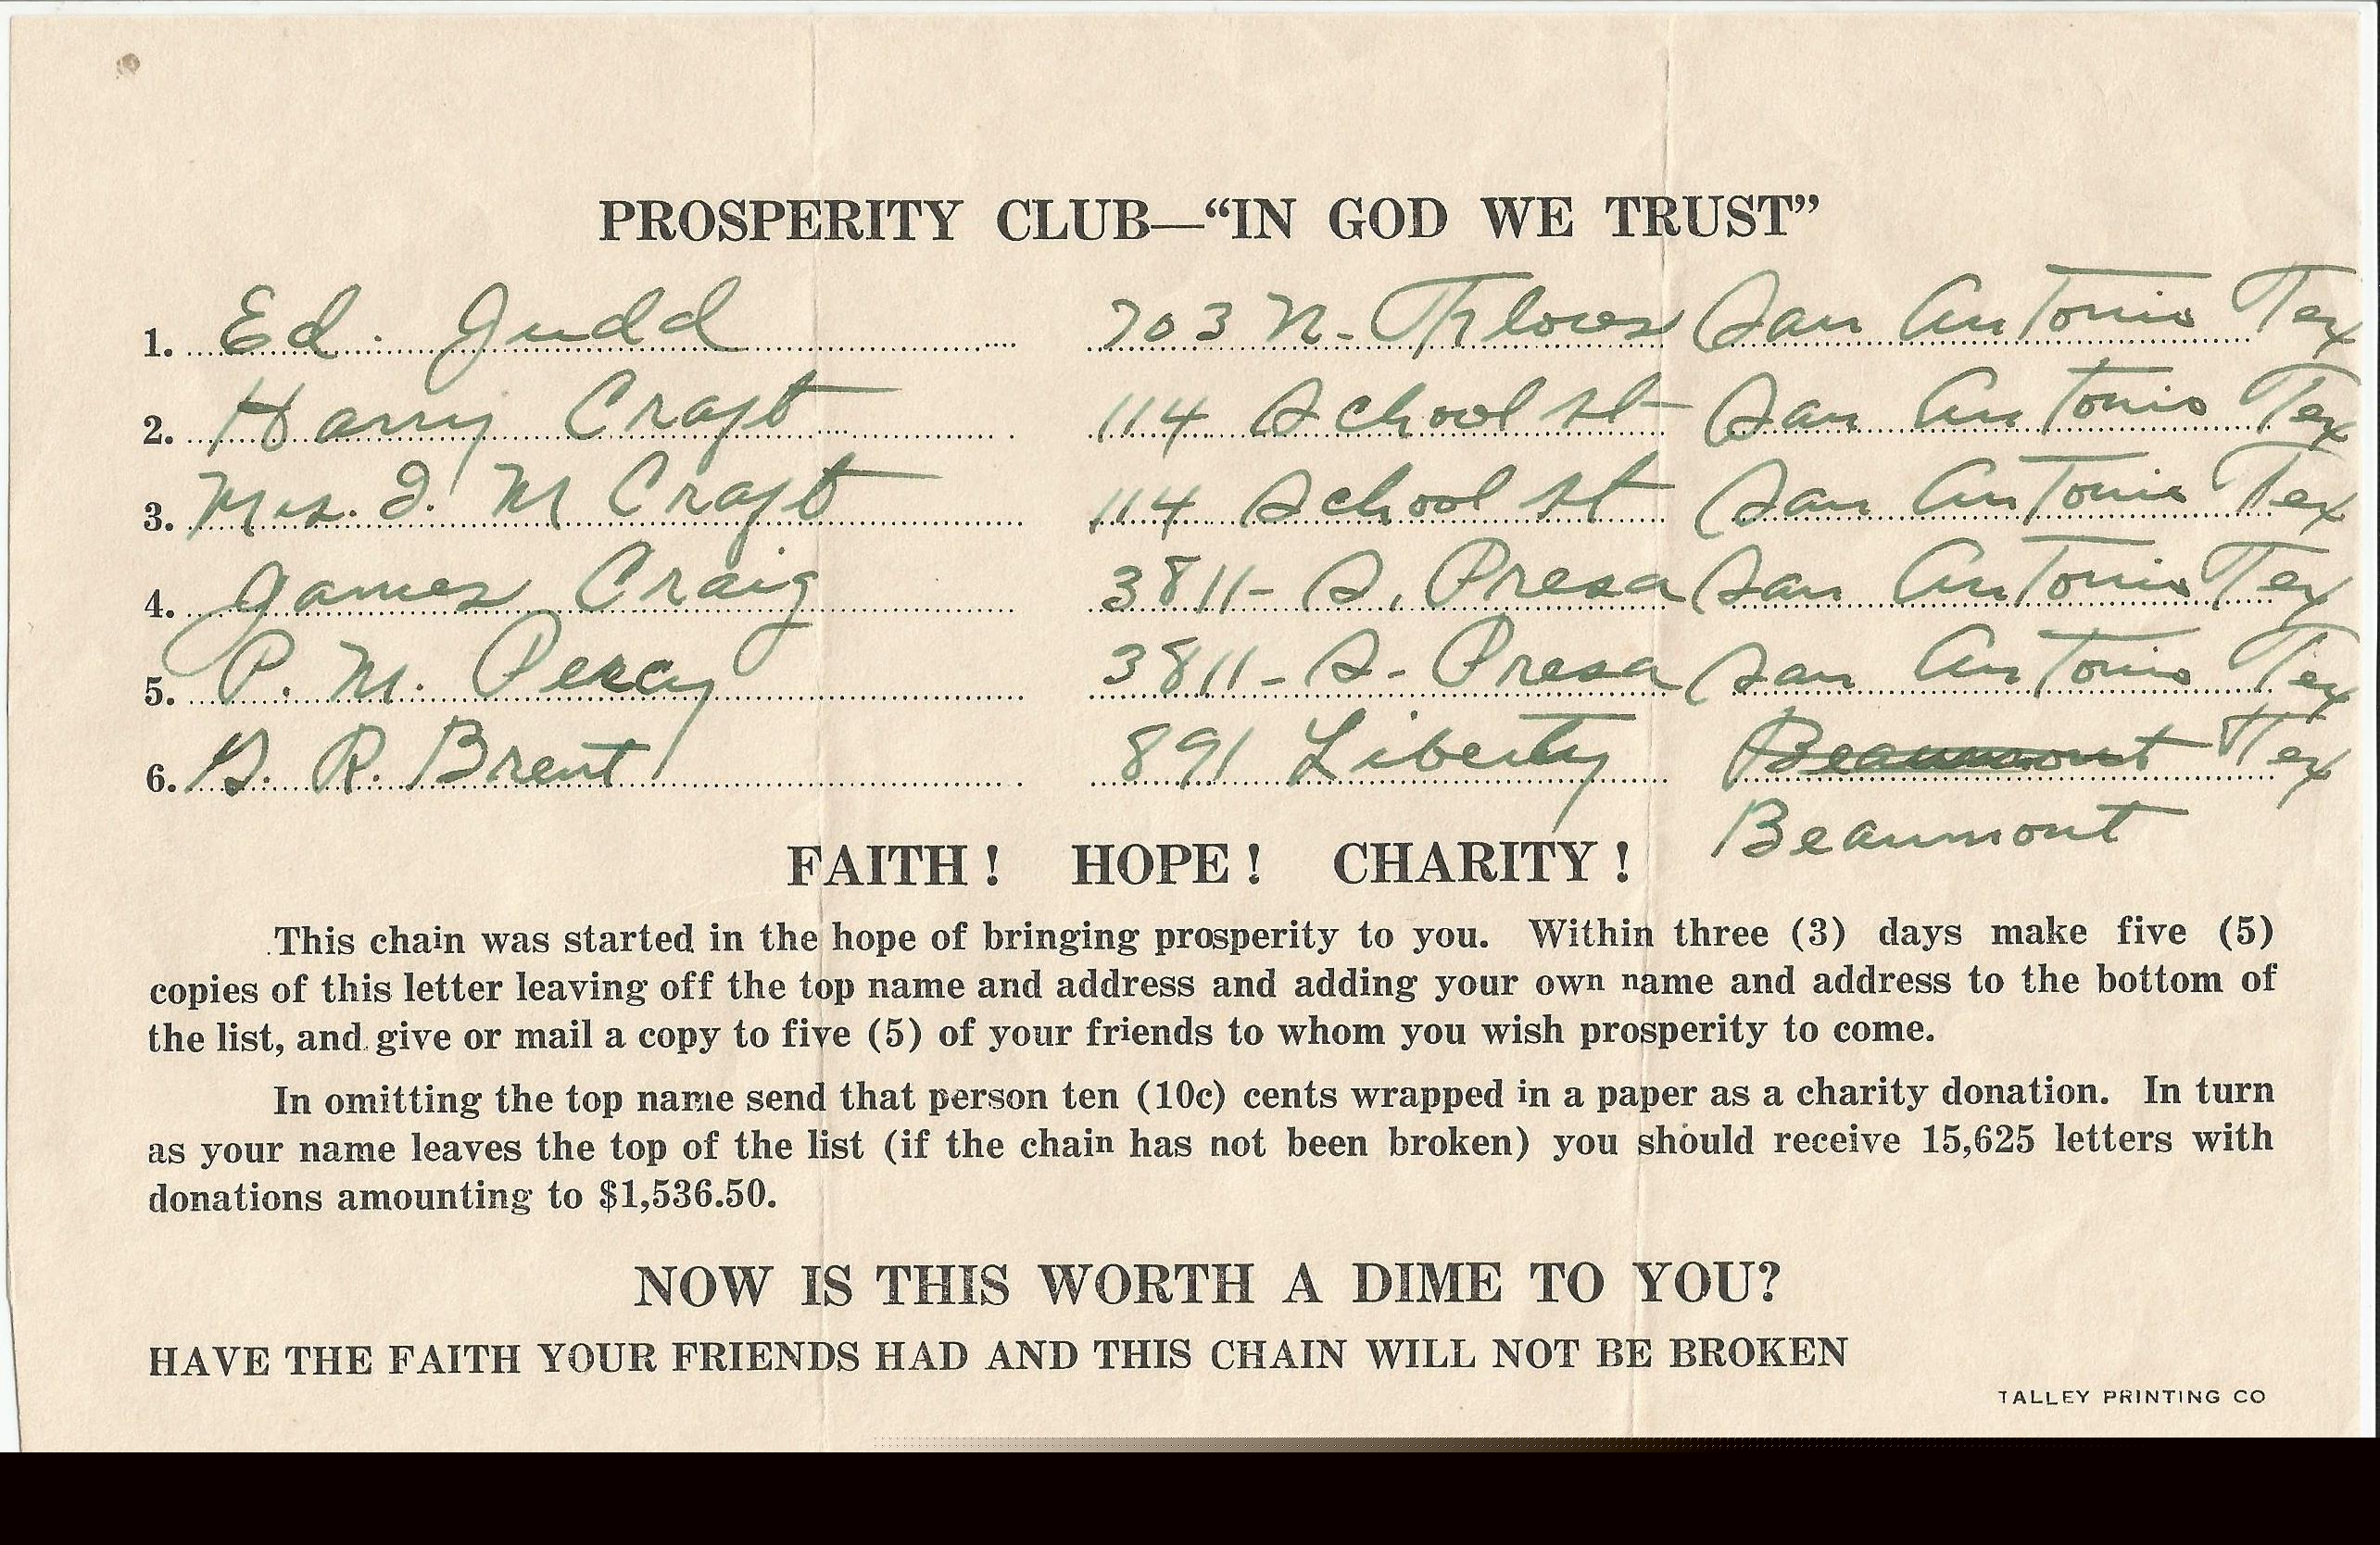 PROSPERITY CLUB—“IN GOD WE TRUST”
1. Ed. Judd 703 N. Flores San Antonio Tex
2. Harry Craft 114 School st San Antonio Tex
3. Mrs. I. M Craft 114 School st San Antonio Tex
4. James Craig 3811- S. Presa San Antonio Tex
5. P. M. Percy 3811- S- Presa San Antonio Tex
6. R. Brent 891 Liberty Beaumont Tex
Beaumont
FAITH! HOPE! CHARITY!
This chain was started in the hope of bringing prosperity to you. Within three (3) days make five (5)
copies of this letter leaving off the top name and address and adding your own name and address to the bottom of
the list, and give or mail a copy to five (5) of your friends to whom you wish prosperity to come.
In omitting the top name send that person ten (10c) cents wrapped in a paper as a charity donation. In turn
as your name leaves the top of the list (if the chain has not been broken) you should receive 15,625 letters with
donations amounting to $1,536.50.
NOW IS THIS WORTH A DIME TO YOU?
HAVE THE FAITH YOUR FRIENDS HAD AND THIS CHAIN WILL NOT BE BROKEN
TALLEY PRINTING CO